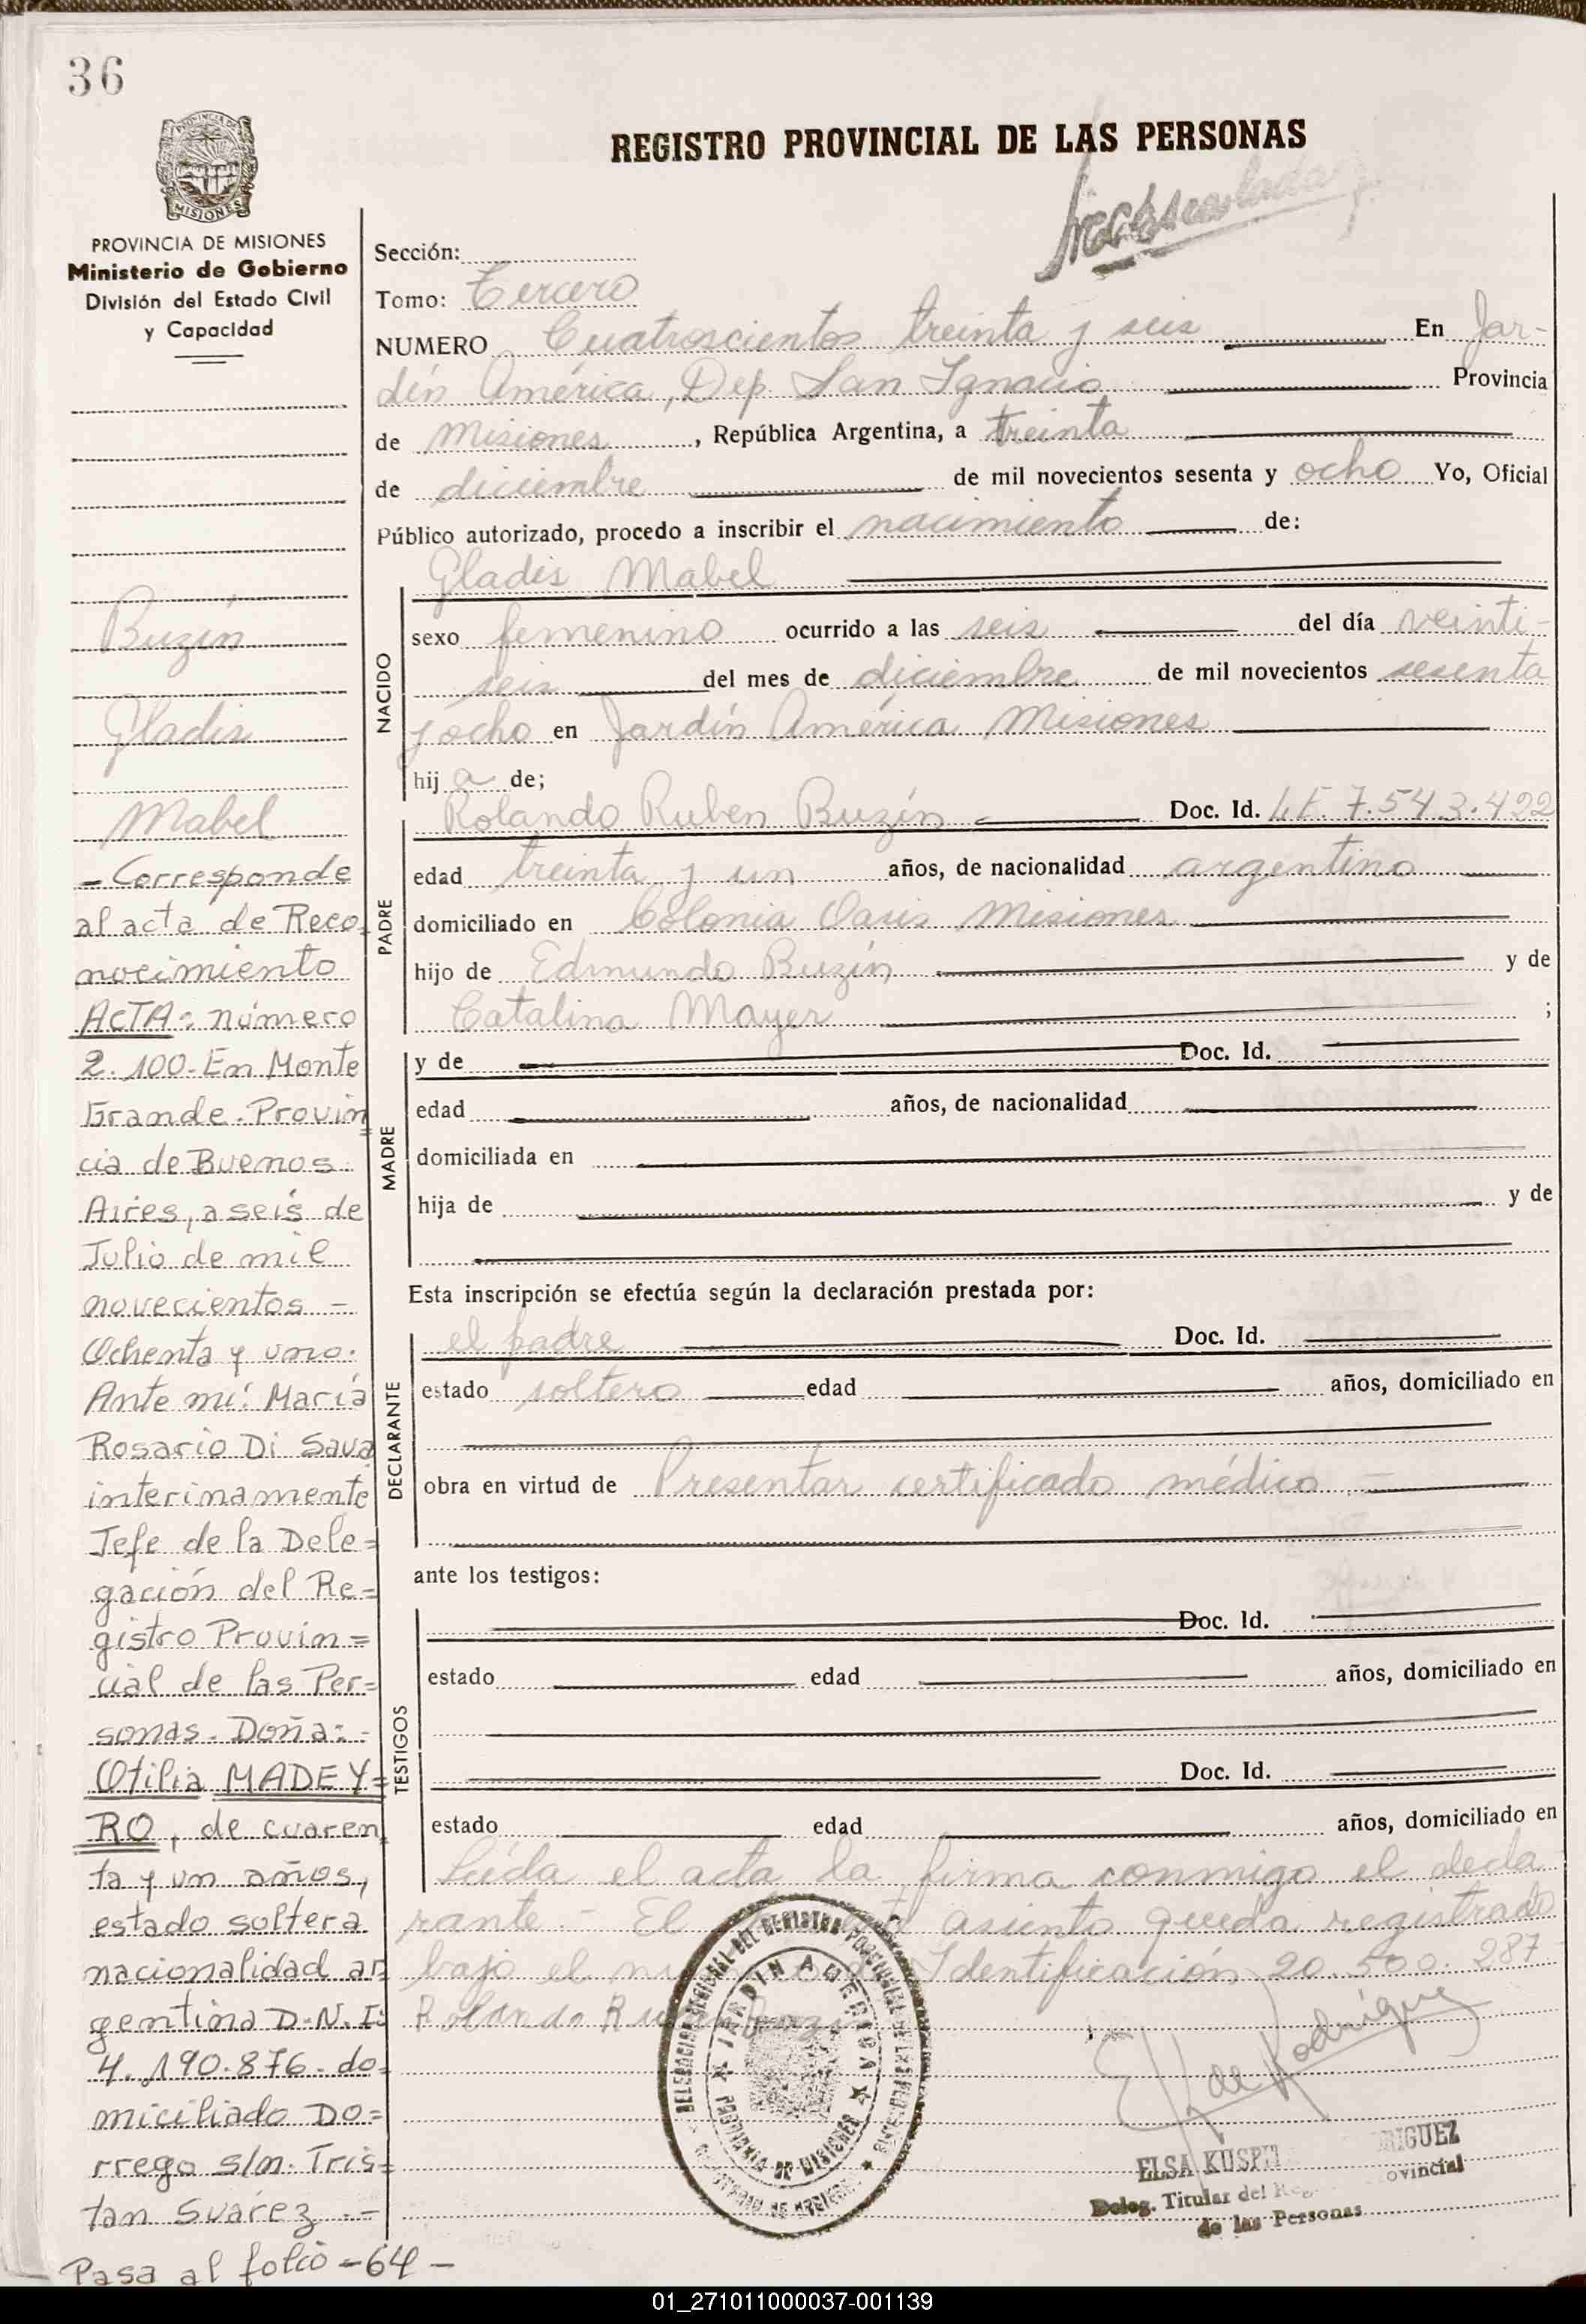 36
PROVINCIA DE MISIONES
Ministerio de Gobierno
División del Estado Civil
y Capacidad
Buzín
Gladis
Mabel
- Corresponde
al acta de Reco
nocimiento
ACTA: número
2.100. En Monte
Grande. Provin
cia de Buenos
Aires, a seis de
Julio de mil
novecientos -
Ochenta y uno.
Ante mí: María
Rosario Di Sava
interinamente
Jefe de la Dele=
gación del Re=
gistro Provin=
cial de las Per=
sonas. Doña: -
Otilia MADEY=
RO, de cuaren
ta y un años,
estado soltera
nacionalidad ar
gentina D.N.I:
4.190.876. do=
miciliado Do=
rrego s/n. Tris=
tan Suárez .-
Pasa al folio -64-
REGISTRO PROVINCIAL DE LAS PERSONAS
Sección:
Tomo: Tercero
NUMERO Cuatroscientos treinta y seis En Jar-
dín América, Dep. San Ignacio Provincia
de Misiones, República Argentina, a treinta
de diciembre de mil novecientos sesenta y ocho Yo, Oficial
Público autorizado, procedo a inscribir el nacimiento de:
NACIDO
Gladis Mabel
sexo femenino ocurrido a las seis del día veinti-
seis del mes de diciembre de mil novecientos sesenta
y ocho en Jardín América Misiones
hij a de;
PADRE
Rolando Ruben Buzín Doc. Id. L.E. 7.543.422
edad treinta y un años, de nacionalidad argentino
domiciliado en Colonia Oasis Misiones
hijo de Edmundo Buzín y de
Catalina Mayer ;
MADRE
y de Doc. Id.
edad años, de nacionalidad
domiciliada en
hija de y de
Esta inscripción se efectúa según la declaración prestada por:
DECLARANTE
el padre Doc. Id.
estado soltero edad años, domiciliado en
obra en virtud de Presentar certificado médico -
ante los testigos:
TESTIGOS
Doc. Id.
estado edad años, domiciliado en
Doc. Id.
estado edad años, domiciliado en
Leída el acta la firma conmigo el decla
rante.- El asiento queda registrado
bajo el Identificación 20.500.287
Rolando
E K de Rodríguez
JARDIN AMERICA
PROVINCIA DE MISIONES
ELSA
Deleg. Titular del
de las Personas
01_271011000037-001139